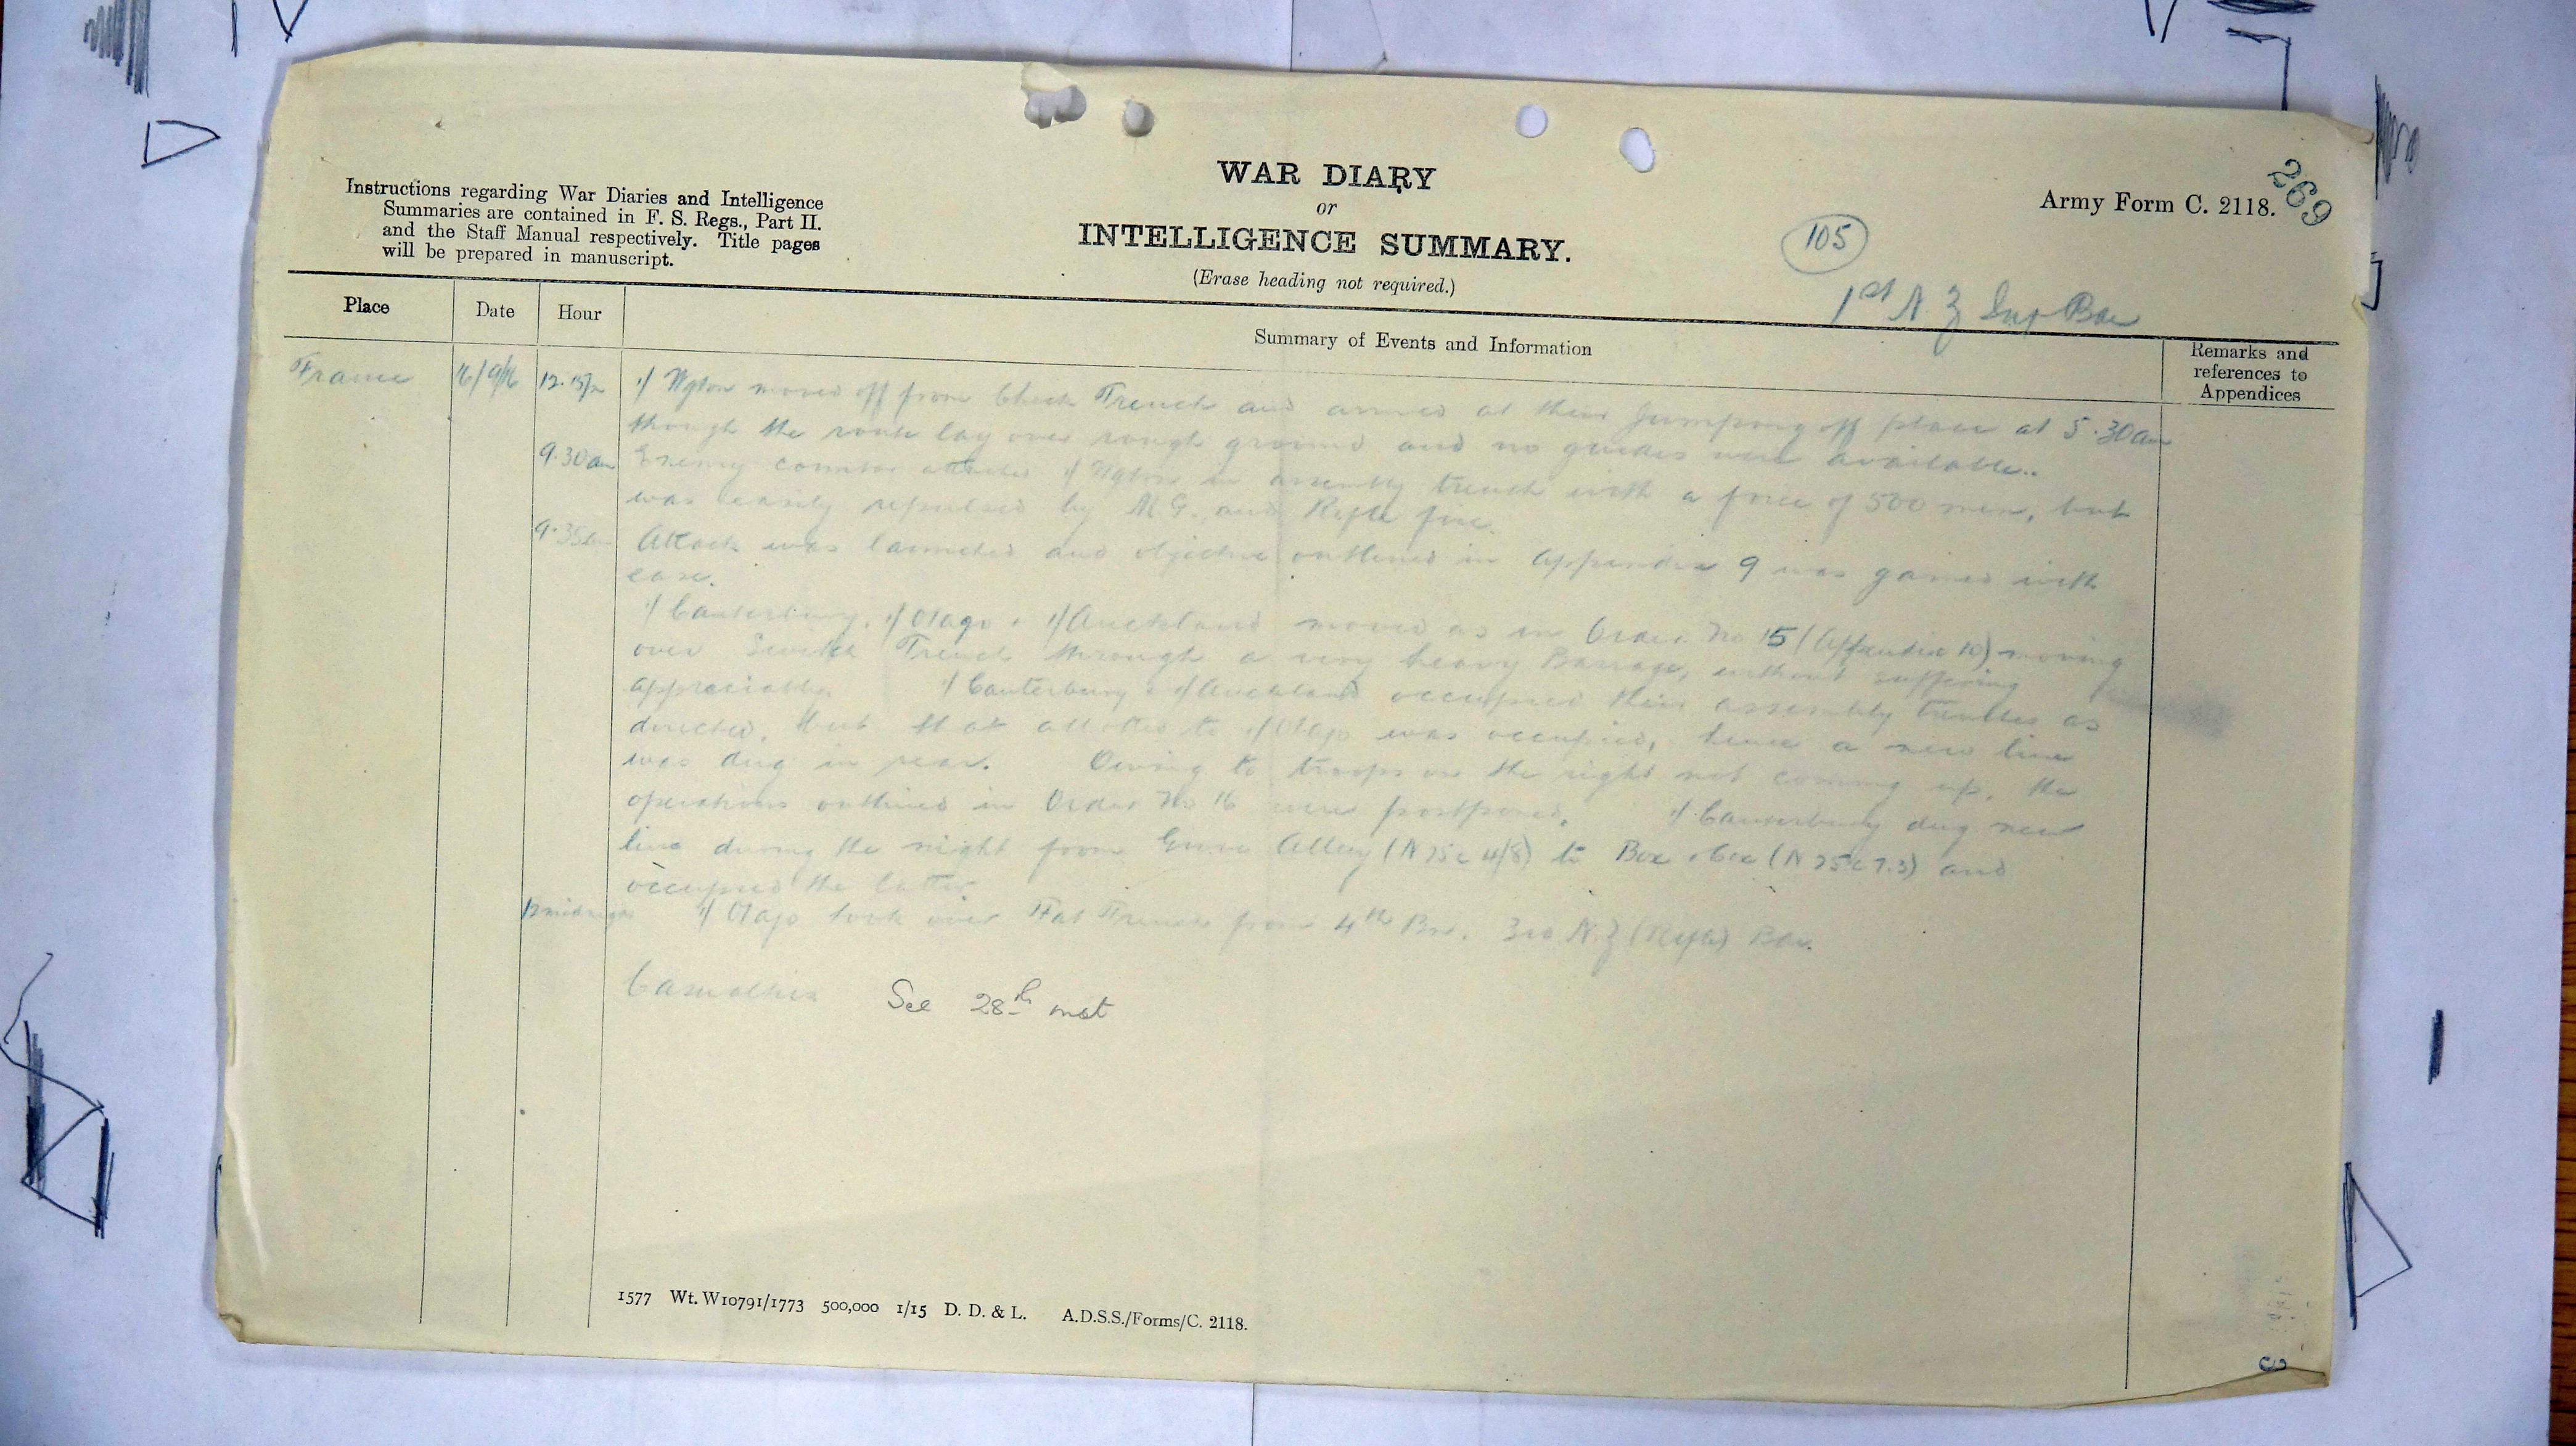 WAR DIARY
or
INTELLIGENCE SUMMARY.
(Erase heading not required.)
Instructions regarding War Diaries and Intelligence
Summaries are contained in F. S. Regs., Part II.
and the Staff Manual respectively. Title pages
will be prepared in manuscript.
Army Form C. 2118.
269
105
1st N Z Inf Bde
Place
Date
Hour
Summary of Events and Information
Remarks and
references to
Appendices
France 16/9/16 1/ Wgton moved off from Check Trench and arrived at their jumping off place at 5.30am
though the route lay over rough ground and no guides were available.
9.30am Enemy counter attacked 1/ Wgton in assembly trench with a force of 500 men, but
was easily repulsed by M.G. and Rifle fire.
9.35am Attack was launched and objective outlined in Appendix 9 was gained with
ease.
1/ Canterbury, 1/ Otago + 1/ Auckland moved as in Order No 15 (Appendix 10) moving
over Switch Trench through a very heavy Barrage, without suffering
appreciably. 1/ Canterbury & 1/ Auckland occupied their assembly trenches as
directed, but that allotted to 1/ Otago was occupied, hence a new line
was dug in rear. Owing to troops on the right not coming up, the
operations outlined in Order No 16 were postponed. 1/ Canterbury dug new
line during the night from Grove Alley (N 25 c 4/8) to Box + Cox (N 25 c 7.3) and
occupied the latter
12 midnight 1/ Otago took over Flat Trench from 4th Bn. 3rd N.Z (Rifle) Bde.
Casualties See 28th inst
1577 Wt. W10791/1773 500,000 1/15 D. D. & L. A.D.S.S./Forms/C. 2118.